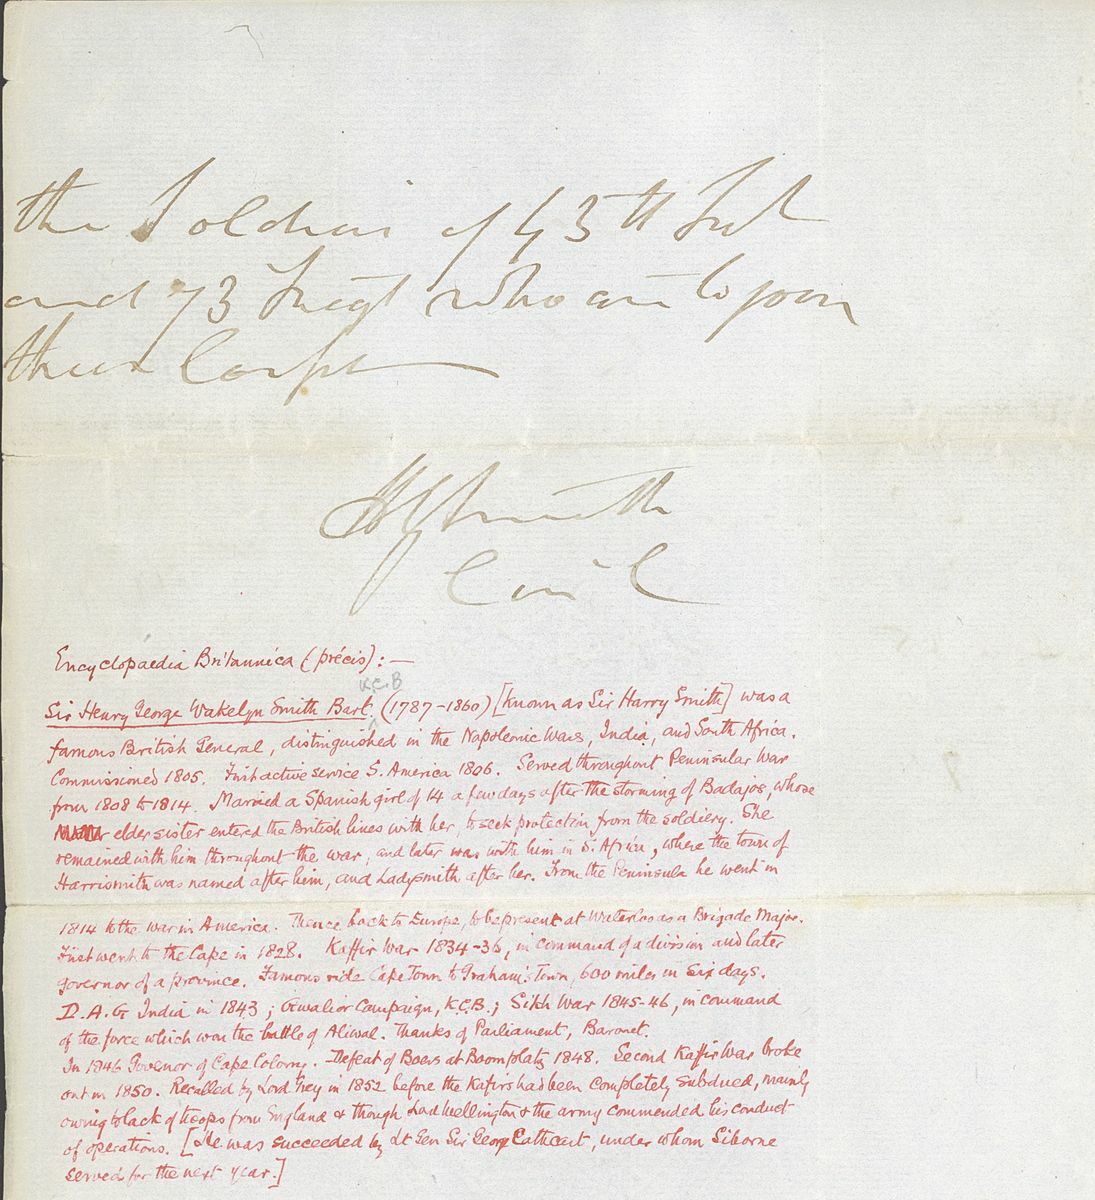 the Soldiers of 43rd Foot
and 73 Regt who are to join
their Corps
HGSmith
Encyclopaedia Britannica (précis):—
K.C.B
Sir Henry George Wakelyn Smith Bart. (1787-1860) [known as Sir Harry Smith] was a
famous British General, distinguished in the Napoleonic Wars, India, and South Africa.
Commissioned 1805. First active service S. America 1806. Served throughout Peninsular War
from 1808 to 1814. Married a Spanish girl of 14 a few days after the storming of Badajos, whose
elder sister entered the British lines with her, to seek protection from the soldiery. She
remained with him throughout the war, and later was with him in S. Africa, where the town of
Harrismith was named after him, and Ladysmith after her. From the Peninsula he went in
1814 to the war in America. Thence back to Europe, to be present at Waterloo as a Brigade Major.
First went to the Cape in 1828. Kaffir War 1834-36, in command of a division and later
governor of a province. Famous ride Cape Town to Graham's Town, 600 miles in six days.
D.A.G India in 1843; Gwalior Campaign, K.C.B.; Sikh War 1845-46, in command
of the force which won the battle of Aliwal. Thanks of Parliament, Baronet.
In 1846 Governor of Cape Colony. Defeat of Boers at Boomplatz 1848. Second Kaffir War broke
out in 1850. Recalled by Lord Grey in 1852 before the Kafirs had been completely subdued, mainly
owing to lack of troops from England & though Lord Wellington & the army commended his conduct
of operations. [He was succeeded by Lt Gen Sir George Cathcart, under whom Siborne
served for the next year.]